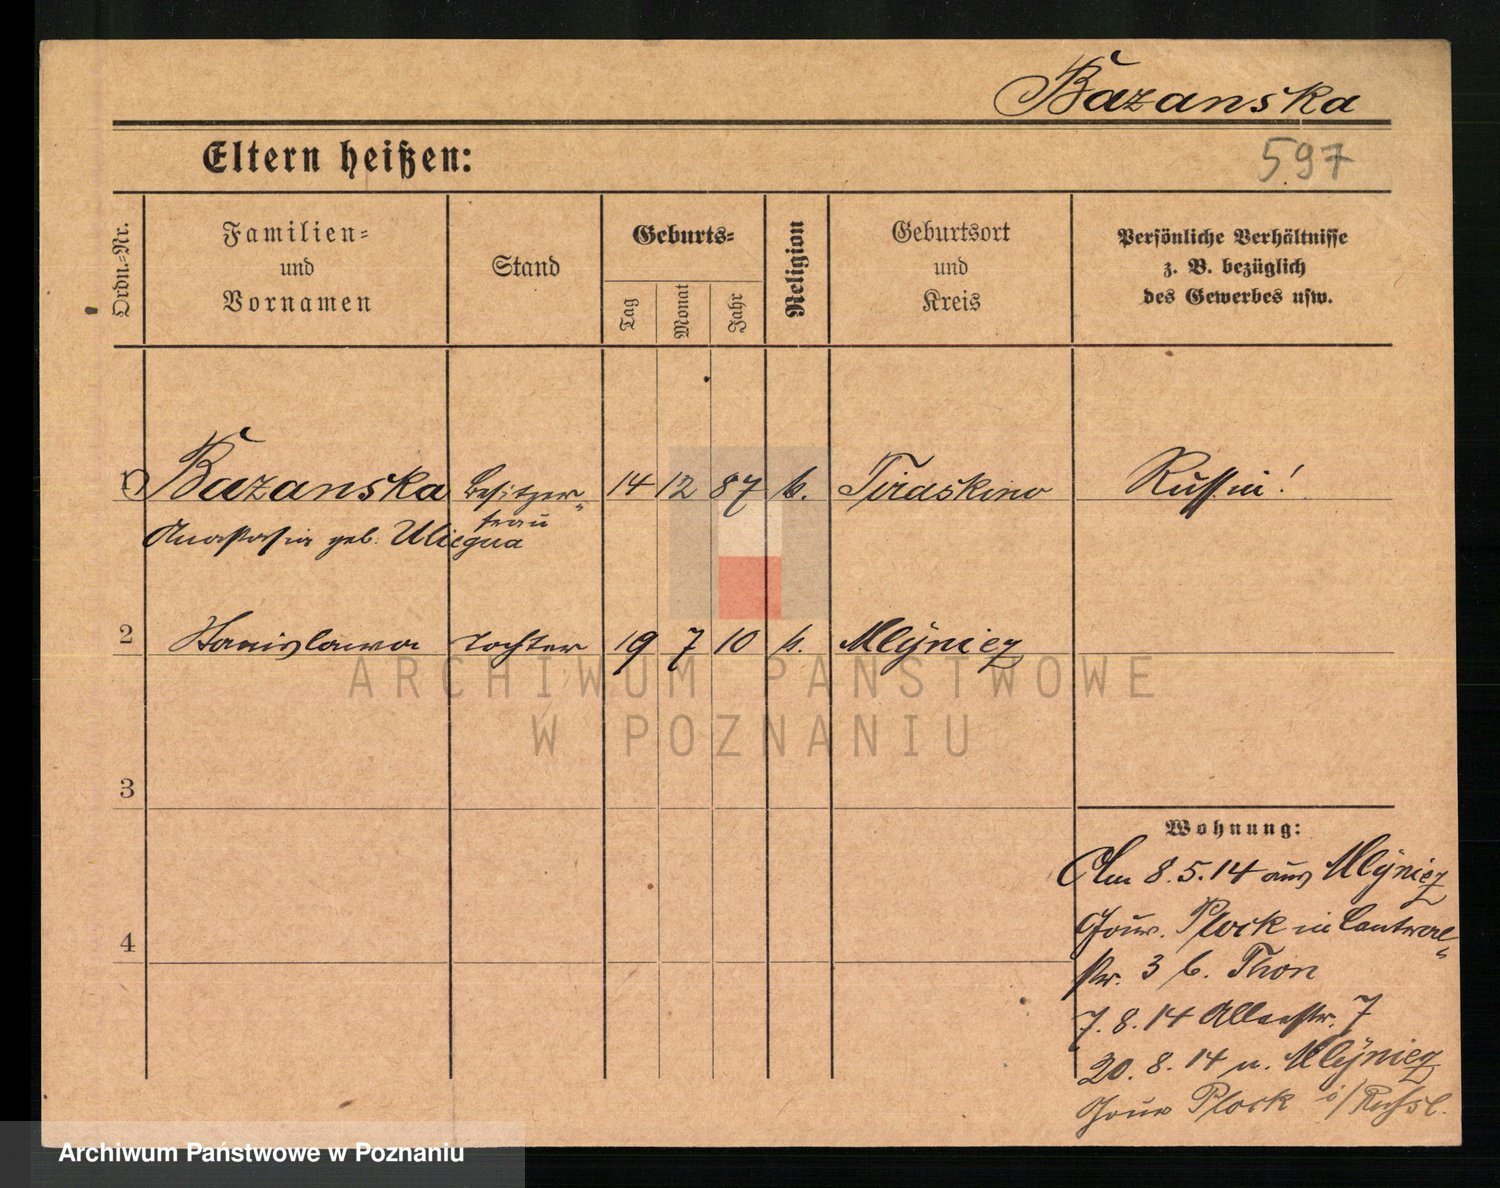 Bazanska
Eltern heißen:
597
Ordn.-Nr.
Familien-
und
Vornamen
Stand
Geburts-
Tag
Monat
Jahr
Religion
Geburtsort
und
Kreis
Persönliche Verhältnisse
z. B. bezüglich
des Gewerbes usw.
1 Bazanska Besitzer- 14 12 87 k. Russin!
frau
Anastasia geb.
2 Stanislawa Tochter 19 7 10 k. Mlÿniez
ARCHIWUM PAŃSTWOWE
W POZNANIU
3
Wohnung:
Am 8.5.14 aus Mlÿniez
Gouv. Plock in
4
str. 3 b. Thon
7.8.14 Alleestr. 7
20.8.14 n. Mlÿniez
Gouv Plock i/Rußl.
Archiwum Państwowe w Poznaniu